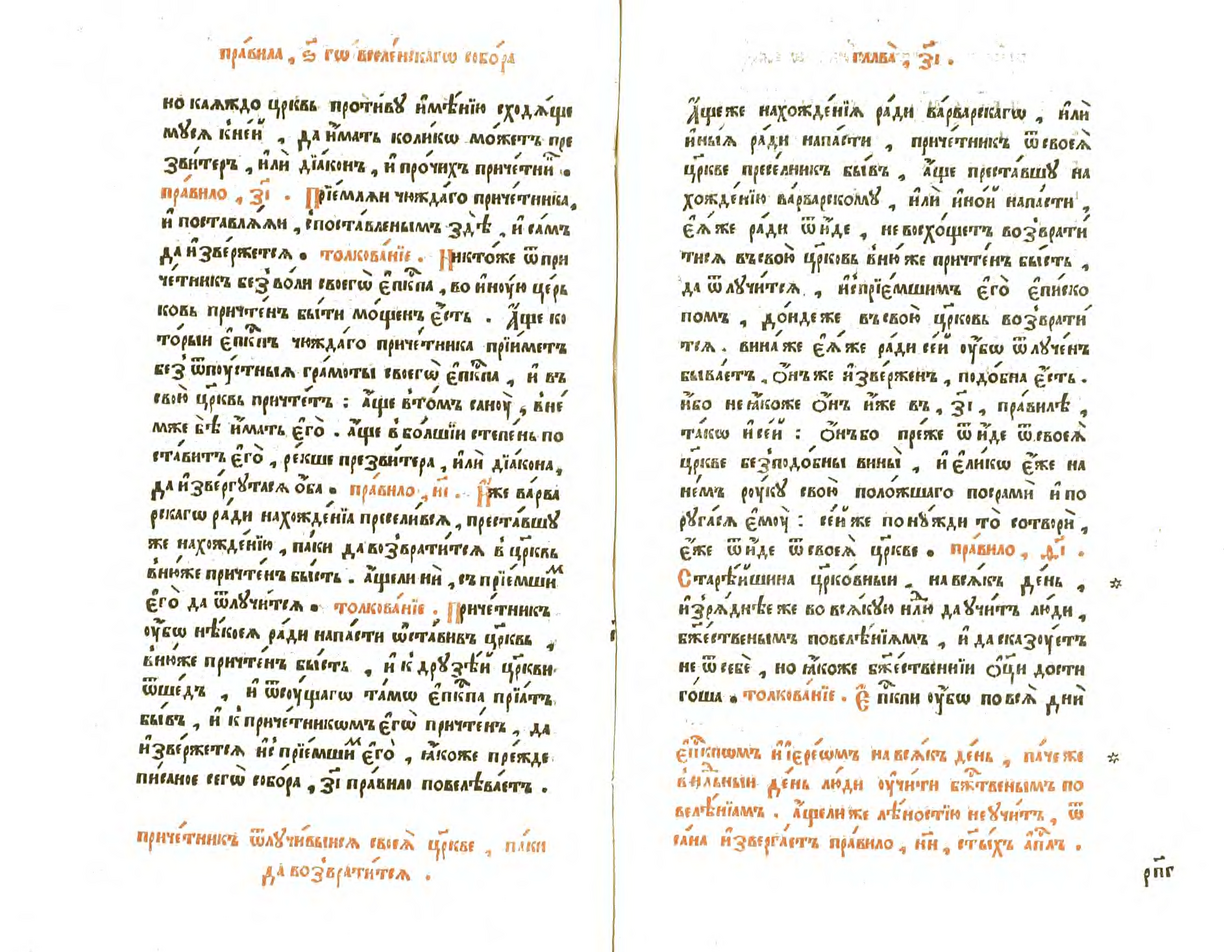 пра́вила , ѕ҃ гѡ вселе́нскагѡ собо́ра
но каѧждо цр҃квь проти́вꙋ и҆мѣ́нїю сходѧ́ще
мꙋсѧ к не́й , да и҆́мать коли́кѡ мо́жетъ пре
зви́теръ , и҆лѝ дїа́конъ , и҆ про́чихъ приче́тни́къ .
пра́вило , з҃і . Прїе́млѧи чюжда́го приче́тника ,
и҆ поставлѧ́ѧи , с поставленымъ здѣ̀ , и҆ са́мъ
да и҆зве́ржетсѧ . толкова́нїе . Никто́же ѿ при
че́тникъ без̾ во́ли своегѡ̀ є҆пⷭ҇кпа , во и҆ну́ю це́рь
ковь причте́нъ бы́ти мо́щенъ є҆́сть . А҆́ще ко
то́рыи є҆пⷭ҇кпъ чюжда́го приче́тника прїи́метъ
без̾ ѿпу́стныѧ гра́моты своегѡ̀ є҆пⷭ҇кпа , и҆ въ
свою̀ цр҃квь причте́тъ : а҆́ще в то́мъ санꙋ̀ , в не́
мже бѣ̀ и҆мать є҆го̀ . а҆́ще в бо́лшїи степе́нь по
ста́витъ є҆го̀ , ре́кше презви́тера , и҆лѝ дїа́кона ,
да и҆зве́ргꙋтсѧ ѻ҆́ба . пра́вило , и҃і . И҆́же ва́рва
рскагѡ ра́ди нахожде́нїа пресели́всѧ , преста́вшꙋ
же нахожде́нїю , па́ки да возврати́тсѧ в цр҃квь
в ню́же причте́нъ бы́сть . а҆́щели нѝ , съ прїе́мшиⷨ
є҆го̀ да ѿлꙋчи́тсѧ . толкова́нїе . Приче́тникъ
ѹ҆́бѡ нѣ́коеѧ ра́ди напа́сти ѡ҆ста́вивъ цр҃квь ,
в ню́же причте́нъ бы́сть , и҆ к дрꙋзѣ́й цр҃кви
ѿше́дъ , и҆ ѿ сꙋ́щагѡ та́мѡ є҆пⷭ҇кпа прїѧ́тъ
бы́въ , и҆ к приче́тникѡмъ є҆гѡ̀ причте́нъ , да
и҆зве́ржетсѧ и҆ с̾ прїе́мшиⷨ є҆го̀ , ꙗ҆́коже пре́жде
пи́саное сегѡ̀ собо́ра , з҃і пра́вило повелѣва́етъ .
приче́тникъ ѿлꙋчи́выисѧ своеѧ̀ цр҃кве , па́ки
да возврати́тсѧ .
глава̀ , з҃і .
А҆́ще же нахожде́нїѧ ра́ди ва́рварскагѡ , и҆лѝ
и҆ны́ѧ ра́ди напа́сти , приче́тникъ ѿ своеѧ̀
цр҃кве пресе́лникъ бы́въ , а҆́ще преста́вшꙋ на
хожде́нїю ва́рварскомꙋ , и҆лѝ и҆но́й напа́сти ,
є҆ѧ́же ра́ди ѿи́де , не восхо́щетъ возврати́
тисѧ въ свою̀ цр҃ковь в ню́же причте́нъ бы́сть ,
да ѿлꙋчи́тсѧ , и҆ с прїе́мшимъ є҆го̀ є҆пи́ско
помъ , до́ндеже въ свою̀ цр҃ковь возврати́
тсѧ . вина́ же є҆ѧ́же ра́ди се́й ѹ҆́бѡ ѿлꙋче́нъ
быва́етъ , ѻ҆́нъ же и҆зве́рженъ , подо́бна є҆́сть .
и҆́бо не ꙗ҆́коже ѻ҆́нъ и҆́же въ , з҃і , пра́вилѣ ,
та́кѡ и҆ се́й : ѻ҆́нъ бо пре́же ѿи́де ѿ своеѧ̀
цр҃кве без̾ подо́бны вины̀ , и҆ є҆ли́кѡ є҆́же на
не́мъ рꙋ́кꙋ свою̀ поло́жшаго посрамѝ и҆ по
рꙋга́сѧ є҆мꙋ̀ : се́й же по нꙋ́жди то̀ сотворѝ ,
є҆́же ѿи́де ѿ своеѧ̀ цр҃кве . пра́вило , ѳ҃і .
Старѣ́йшина цр҃ко́вныи , на всѧ́къ де́нь , *
и҆зрѧ́днѣе же во всѧ́кꙋю нⷣлю да ᲂу҆́читъ лю́ди ,
бж҃е́ственымъ повелѣ́нїѧмъ , и҆ да сказꙋ́етъ
не ѿ себѐ , но ꙗ҆́коже бж҃е́ственнїи ѻ҆ц҃ы̀ дости
го́ша . толкова́нїе . Є҆ пⷭ҇кпи ѹ҆́бѡ по всѧ̀ днѝ
є҆пⷭ҇кпѡмъ и҆ і҆ере́ѡмъ на всѧ́къ де́нь , па́че же *
в нⷣлныи де́нь лю́ди ᲂу҆чи́ти бж҃твенымъ по
велѣ́нїамъ . а҆́щели же лѣ́ностїю не ᲂу҆́читъ , ѿ
са́на и҆зверга́етъ пра́вило , н҃и , ст҃ы́хъ а҆пⷭ҇лъ .
рп҃г